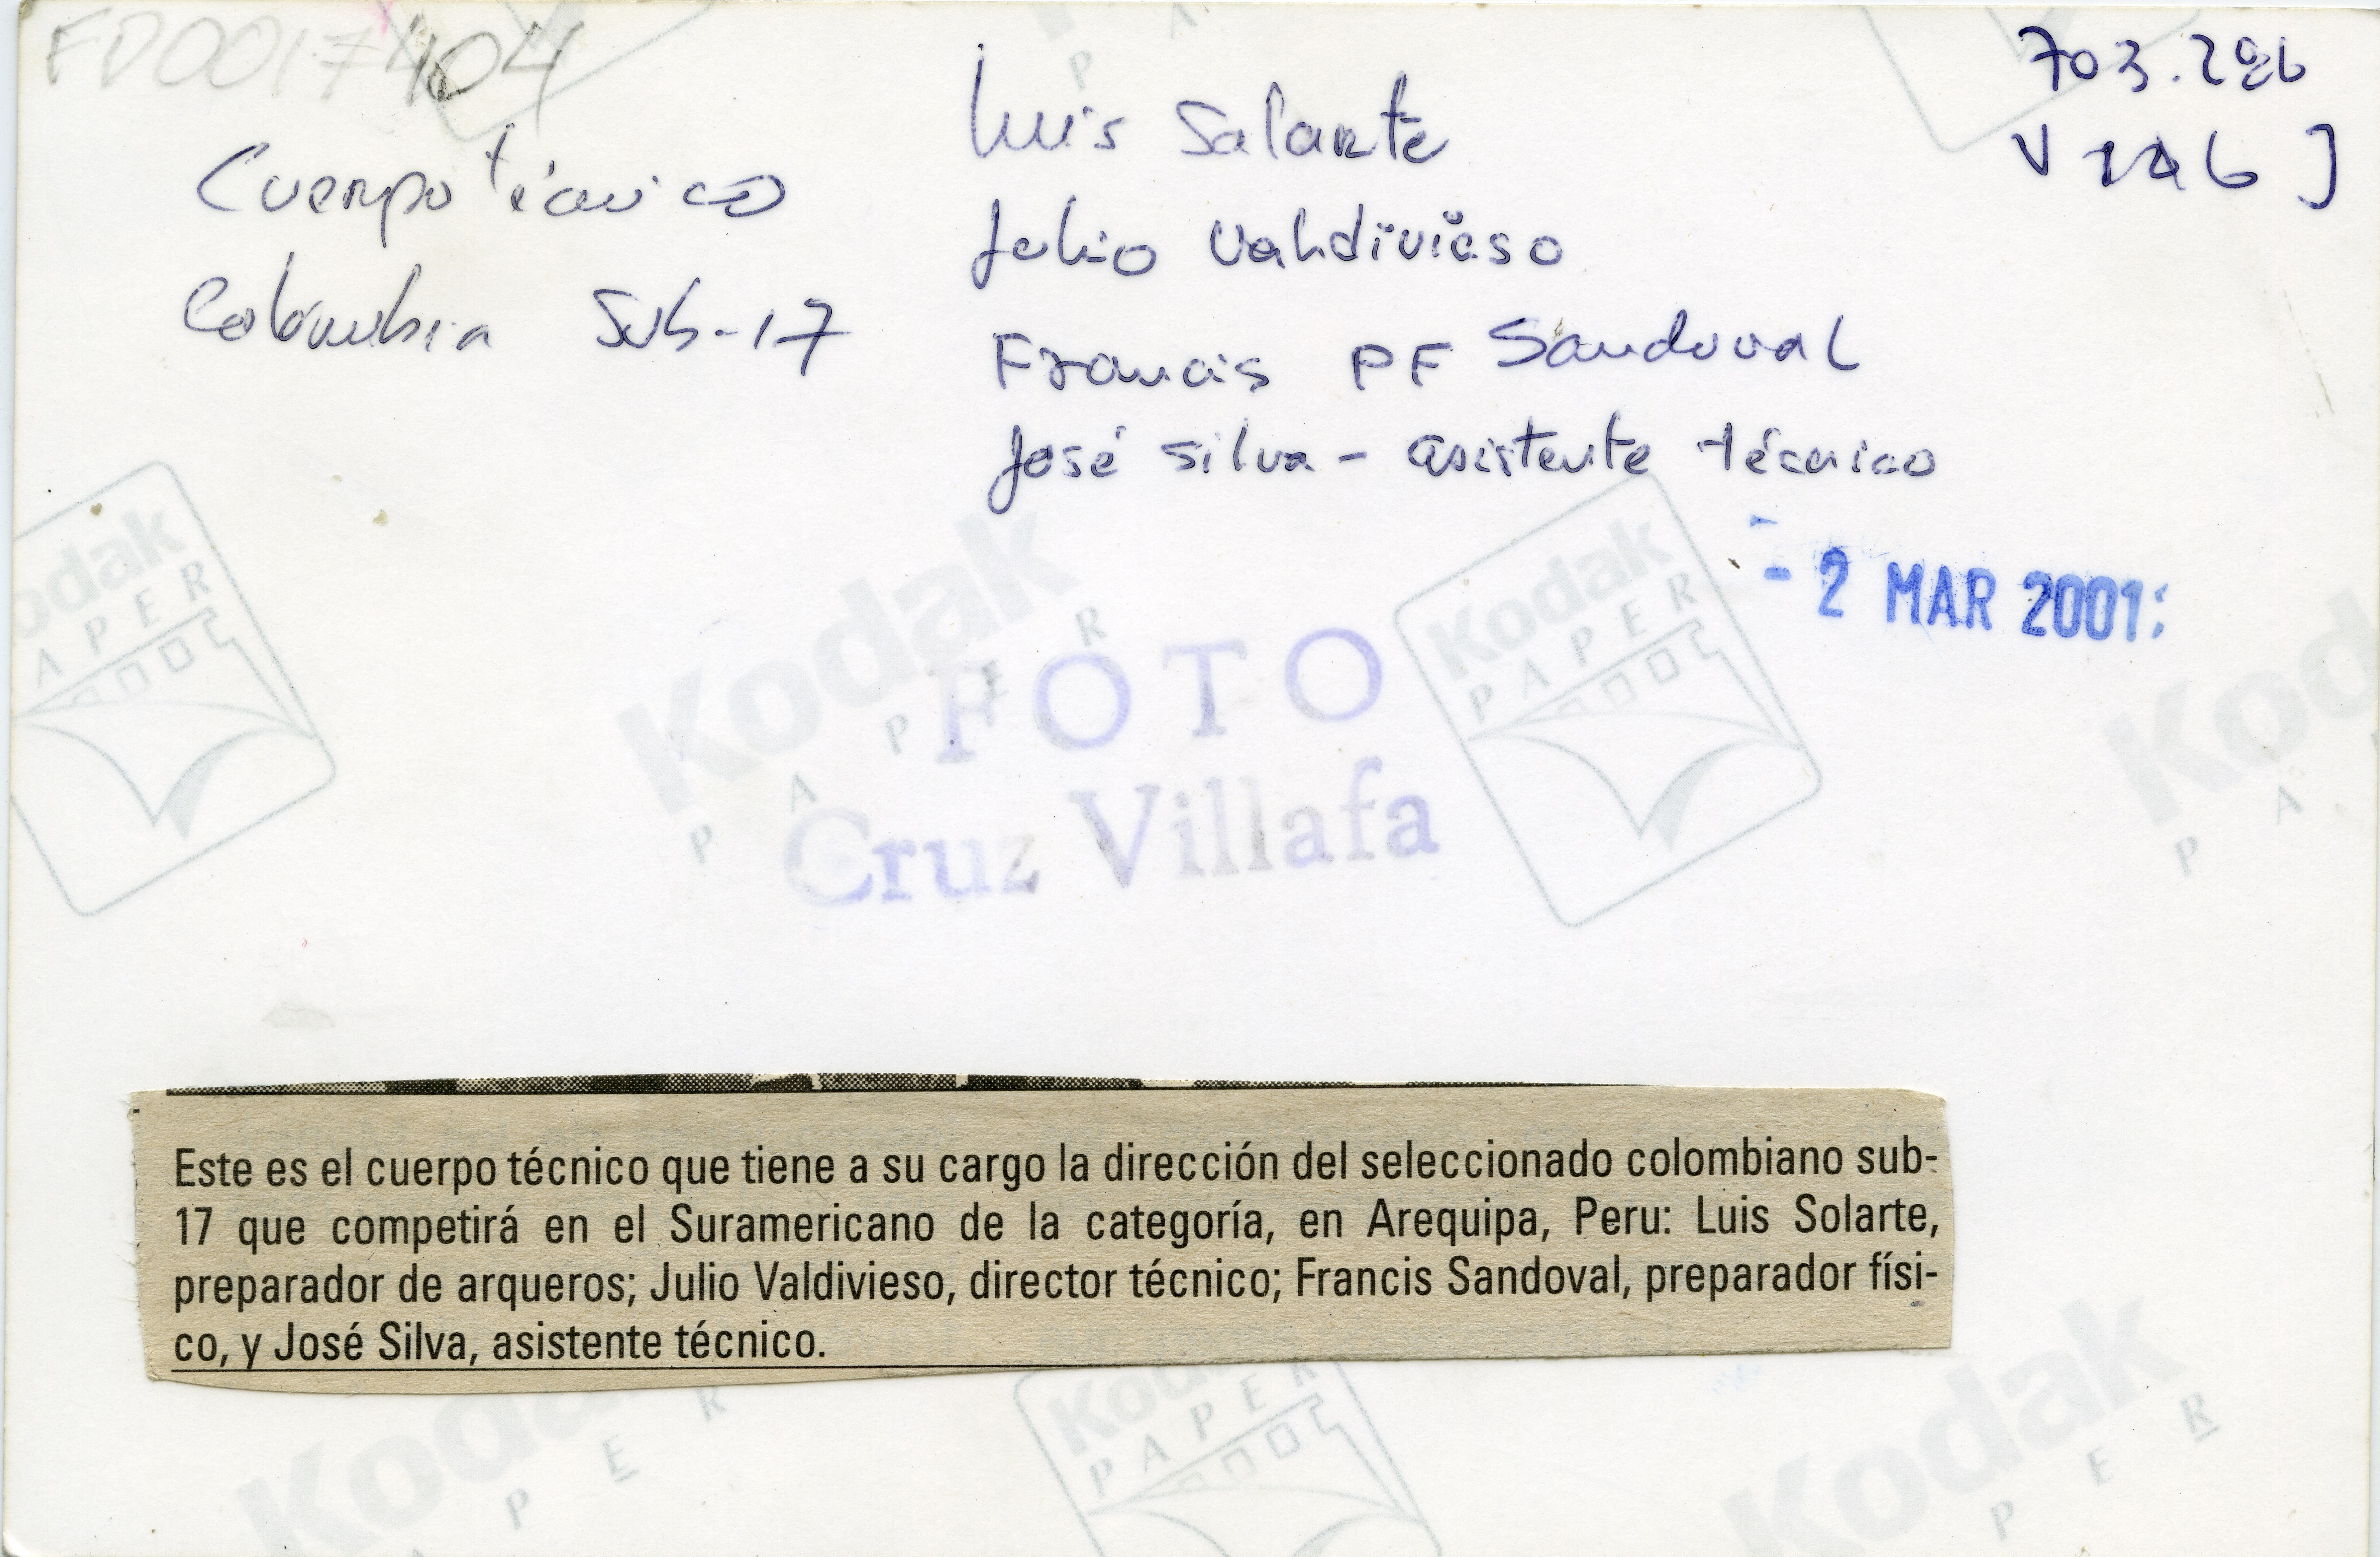 FD0017404
Cuerpo técnico
Colombia Sub-17
Luis Salarte
Julio Valdivieso
Francis PF Sandoval
José Silva - asistente técnico
703.286
- 2 MAR 2001
FOTO
Cruz Villafa
Kodak
PAPER
Kodak
PAPER
Kodak
PAPER
Este es el cuerpo técnico que tiene a su cargo la dirección del seleccionado colombiano sub-
17 que competirá en el Suramericano de la categoría, en Arequipa, Peru: Luis Solarte,
preparador de arqueros; Julio Valdivieso, director técnico; Francis Sandoval, preparador físi-
co, y José Silva, asistente técnico.
Kodak
PAPER
Kodak
PAPER
Kodak
PER